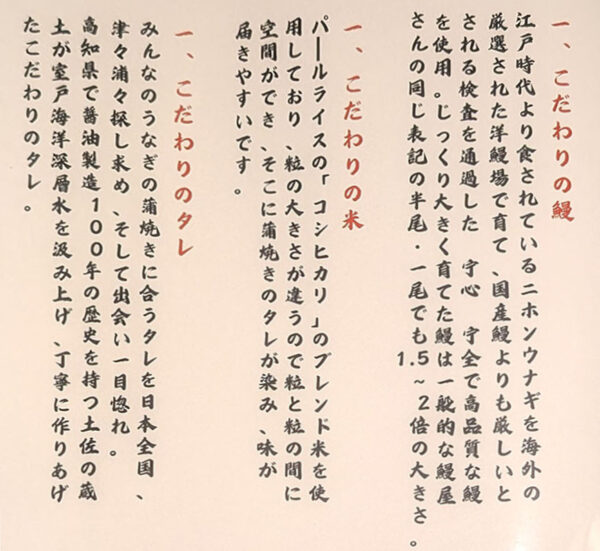 一、こだわりの鰻
江戸時代より食されているニホンウナギを海外の
厳選された洋鰻場で育て、国産鰻よりも厳しいと
される検査を通過した 宁心 宁全で高品質な鰻
を使用。じっくり大きく育てた鰻は一般的な鰻屋
さんの同じ表記の半尾・一尾でも1.5～2倍の大きさ。
一、こだわりの米
パールライスの「コシヒカリ」のブレンド米を使
用しており、粒の大きさが違うので粒と粒の間に
空間ができ、そこに蒲焼きのタレが染み、味が
届きやすいです。
一、こだわりのタレ
みんなのうなぎの蒲焼きに合うタレを日本全国、
津々浦々探し求め、そして出会い一目惚れ。
高知県で醤油製造100年の歴史を持つ土佐の蔵
土が室戸海洋深層水を汲み上げ、丁寧に作りあげ
たこだわりのタレ。